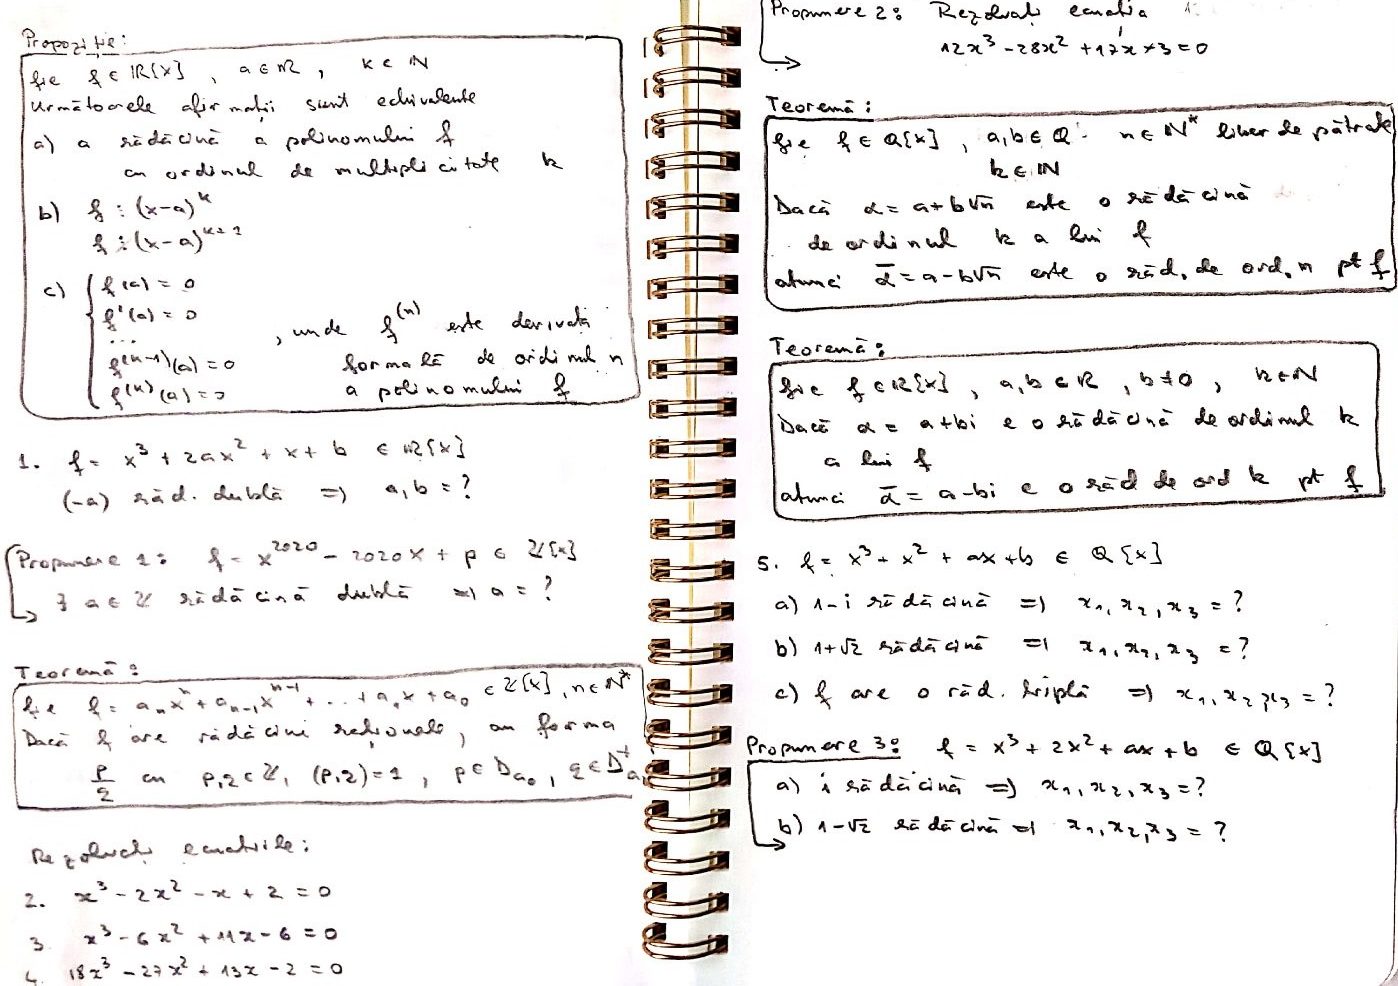 Propoziție:
fie f ∈ ℝ[X] , a ∈ ℝ , k ∈ ℕ
Următoarele afirmații sunt echivalente
a) a rădăcină a polinomului f
cu ordinul de multiplicitate k
b) f ⋮ (x-a)^k
f ⋮ (x-a)^{k+1}
c) { f(a) = 0
f'(a) = 0
...
, unde f^{(n)} este derivata
f^{(k-1)}(a) = 0 formală de ordinul n
f^{(k)}(a) = 0 a polinomului f
1. f = x³ + 2ax² + x + b ∈ ℝ[X]
(-a) răd. dublă => a, b = ?
Propunere 1: f = x^{2020} - 2020x + p ∈ ℤ[X]
∃ a ∈ ℤ rădăcină dublă => a = ?
Teoremă:
fie f = aₙxⁿ + aₙ₋₁xⁿ⁻¹ + ... + a₁x + a₀ ∈ ℤ[X], n ∈ ℕ*
Dacă f are rădăcini raționale, au forma
p/q cu p,q ∈ ℤ, (p,q)=1 , p ∈ D_{a₀} , q ∈ D⁺_{aₙ}
Rezolvați ecuațiile:
2. x³ - 2x² - x + 2 = 0
3. x³ - 6x² + 11x - 6 = 0
4. 18x³ - 27x² + 13x - 2 = 0
Propunere 2: Rezolvați ecuația
12x³ - 28x² + 17x + 3 = 0
Teoremă:
fie f ∈ ℚ[X] , a,b ∈ ℚ n ∈ ℕ* liber de pătrate
k ∈ ℕ
Dacă α = a+b√n este o rădăcină
de ordinul k a lui f
atunci ᾱ = a-b√n este o răd. de ord. n pt f
Teoremă:
fie f ∈ ℝ[X] , a,b ∈ ℝ , b≠0 , k ∈ ℕ
Dacă α = a+bi e o rădăcină de ordinul k
a lui f
atunci ᾱ = a-bi e o răd de ord k pt f
5. f = x³ + x² + ax + b ∈ ℚ[X]
a) 1-i rădăcină => x₁, x₂, x₃ = ?
b) 1+√2 rădăcină => x₁, x₂, x₃ = ?
c) f are o răd. triplă => x₁, x₂, x₃ = ?
Propunere 3: f = x³ + 2x² + ax + b ∈ ℚ[X]
a) i rădăcină => x₁, x₂, x₃ = ?
b) 1-√2 rădăcină => x₁, x₂, x₃ = ?